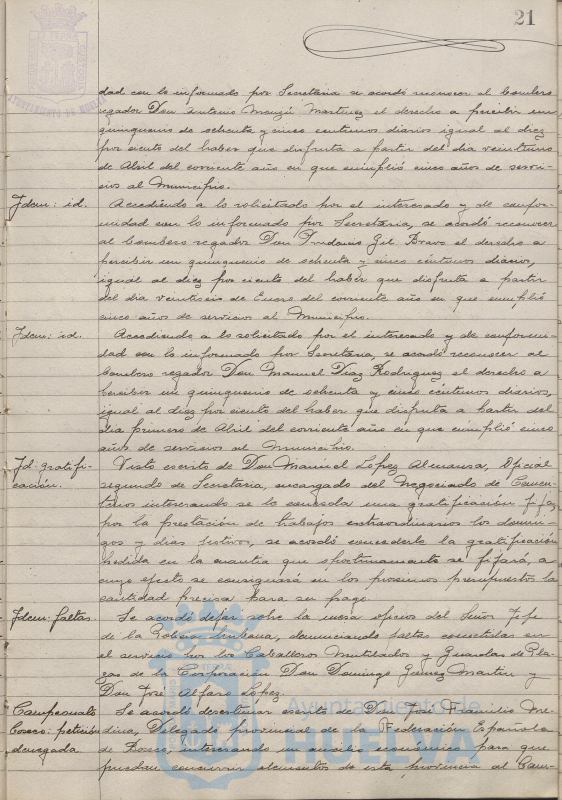 21
AYUNTAMIENTO DE HUELVA
dad con lo informado por Secretaria se acordó reconocer al bombero
regador Don Antonio Martinez el derecho a percibir un
quinquenio de ochenta y cinco centimos diarios igual al diez
por ciento del haber que disfruta a partir del dia veintiuno
de Abril del corriente año en que cumplió cinco años de servi-
cios al Municipio.
Idem: id. Accediendo a lo solicitado por el interesado y de confor-
midad con lo informado por Secretaria, se acordó reconocer
al bombero regador Don Gil Bravo el derecho a
percibir un quinquenio de ochenta y cinco céntimos diarios,
igual al diez por ciento del haber que disfruta a partir
del dia veintiseis de Enero del corriente año en que cumplió
cinco años de servicio al Municipio.
Idem: id. Accediendo a lo solicitado por el interesado y de conformi-
dad con lo informado por Secretaria, se acordó reconocer al
bombero regador Don Manuel Diaz Rodriguez el derecho a
percibir un quinquenio de ochenta y cinco céntimos diarios,
igual al diez por ciento del haber que disfruta a partir del
dia primero de Abril del corriente año en que cumplió cinco
años de servicio al Municipio.
Id: gratifi-
cación. Visto escrito de Don Manuel López Almansa, Oficial
segundo de Secretaria, encargado del Negociado de Cemen-
terios interesando se le conceda una gratificación fija
por la prestación de trabajos extraordinarios los domin-
gos y dias festivos, se acordó concederle la gratificación
pedida en la cuantia que oportunamente se fijará, a
cuyo efecto se consignará en los proximos presupuestos la
cantidad precisa para su pago.
Idem: faltas. Se acordó dejar sobre la mesa oficios del Señor Jefe
de la Policia Urbana, denunciando faltas cometidas en
el servicio por los Caballeros Mutilados y Guardas de Pla-
zas de la Corporación Don Domingo Gomez Martin y
Don José Alfaro López.
Campeonato
Boxeo: petición
denegada. Se acordó desestimar escrito de Don José Francisco Me-
dina, Delegado provincial de la Federación Española
de Boxeo, interesando un auxilio económico para que
puedan concurrir elementos de esta provincia al Cam-
Ayuntamiento de
HUELVA